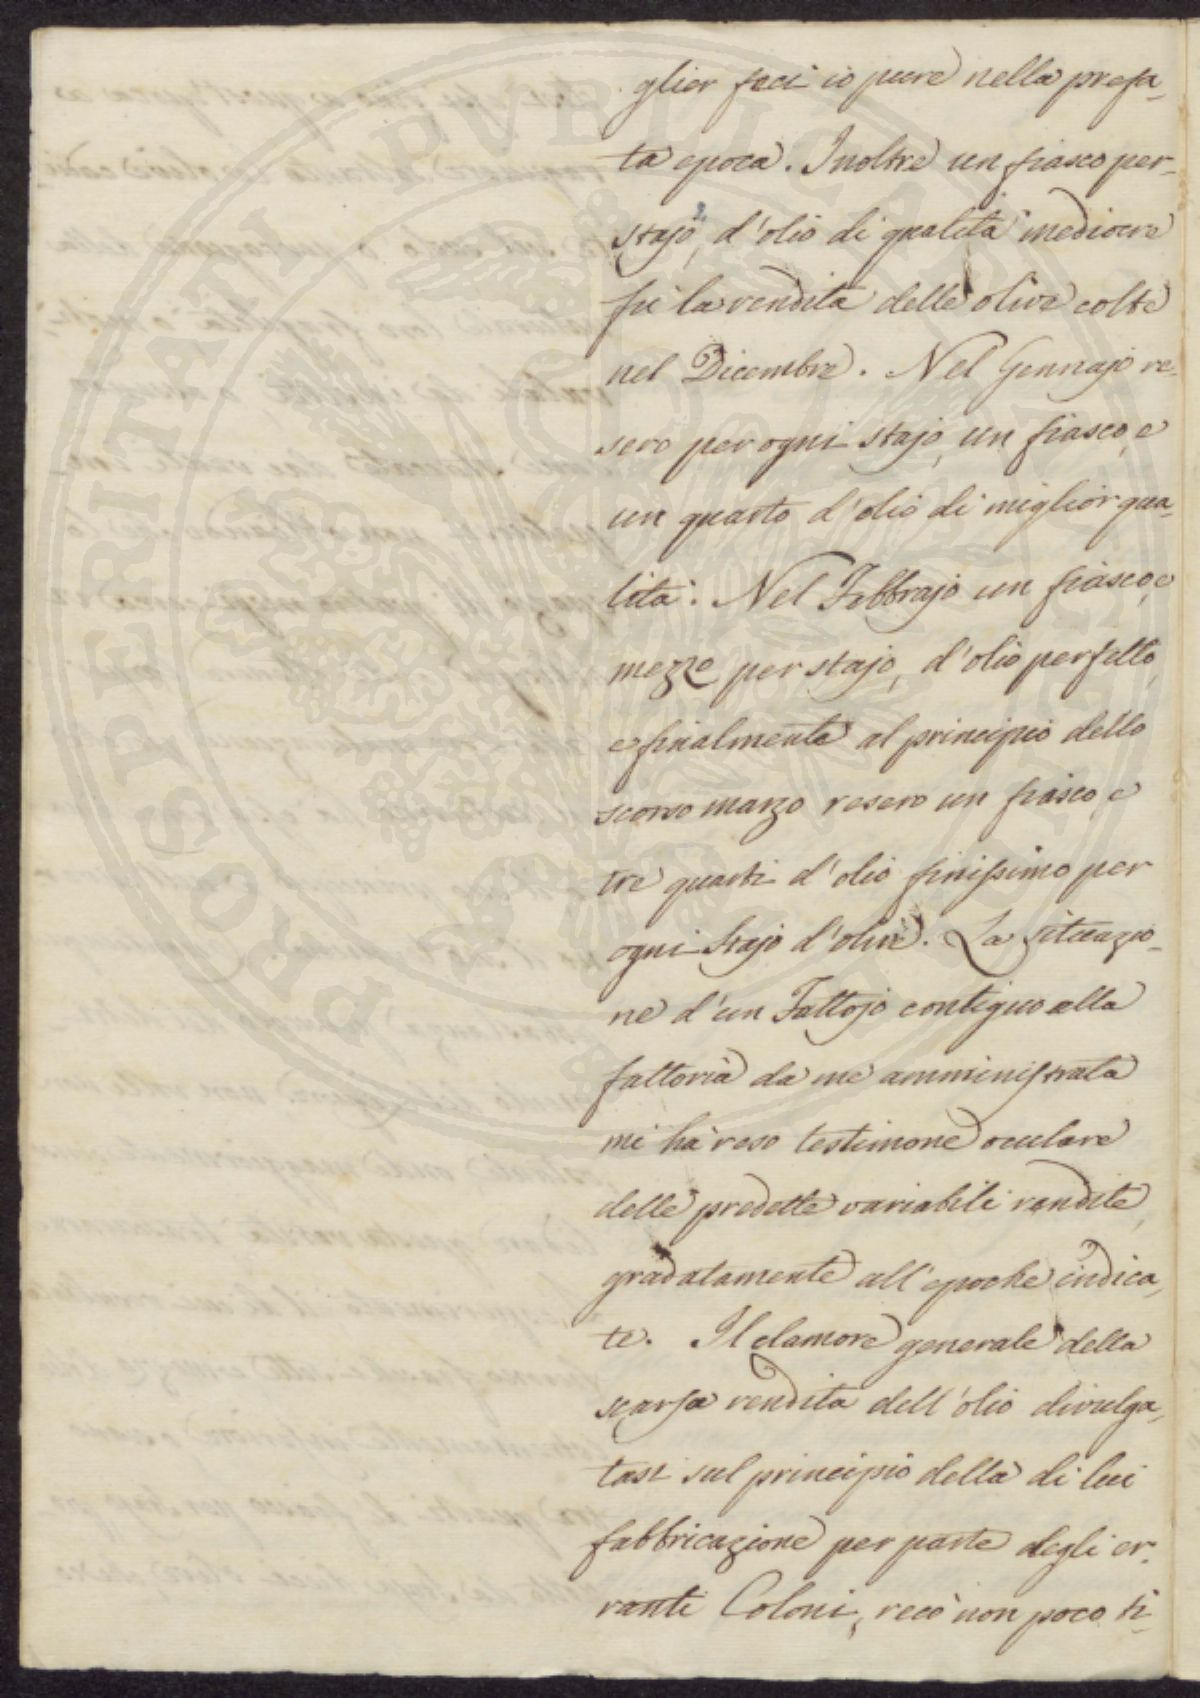 glier feci io pure nella prefa,
ta epoca. Inoltre un fiasco per-
stajo, d'olio di qualità mediocre
fù la rendita delle olive colte
nel Dicembre. Nel Gennajo re-
sero per ogni stajo, un fiasco, e
un quarto d'olio di miglior qua-
lità. Nel Febbrajo un fiasco, e
mezzo per stajo, d'olio perfetto,
e finalmente al principio dello
scorso marzo resero un fiasco, e
tre quarti d'olio finissimo per
ogni stajo d'olive. La situazio-
ne d'un Fattojo contiguo alla
fattoria da me amministrata
mi hà reso testimone oculare
delle predette variabili rendite,
gradatamente all'epoche indica,
te. Il clamore generale della
scarsa rendita dell'olio divulga,
tasi sul principio della di lui
fabbricazione per parte degli er-
ranti Coloni, recò non poco ti-
PROSPERITATI PVBLICAE